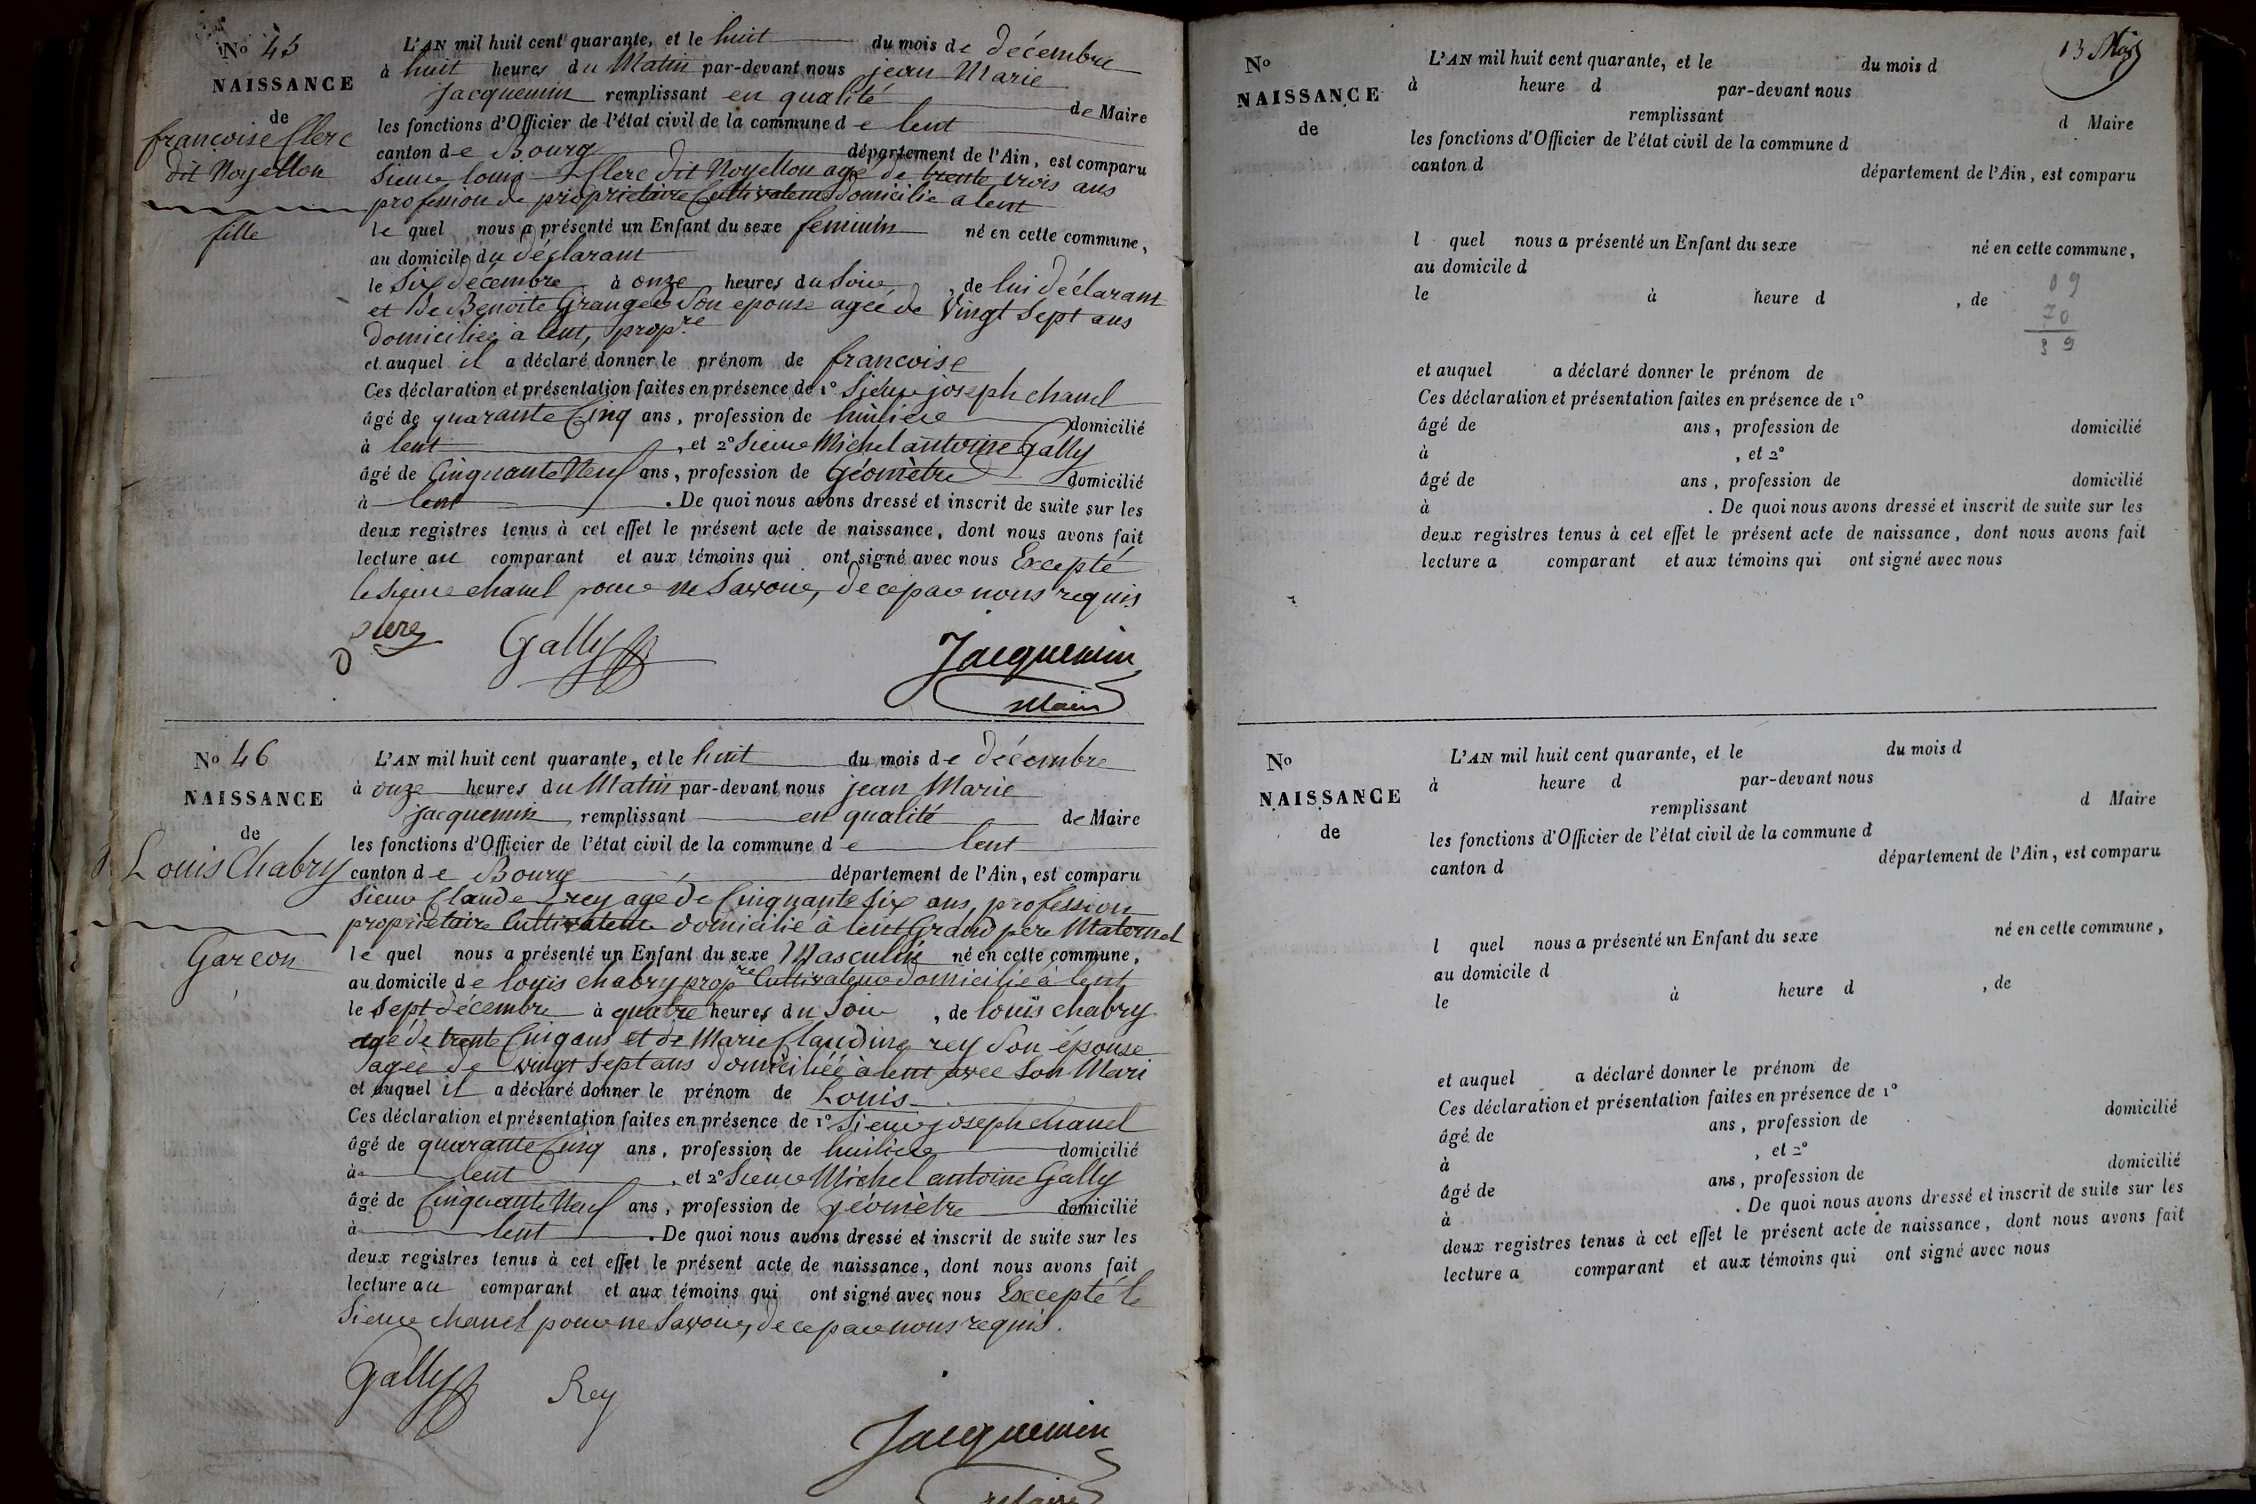 No 45
NAISSANCE
de
francoise Clerc
dit Noyellon
fille
L'AN mil huit cent quarante, et le huit du mois de décembre
à huit heures du Matin par-devant nous jean Marie
Jacquemin remplissant en qualité de Maire
les fonctions d'Officier de l'état civil de la commune de lent
canton de Bourg département de l'Ain, est comparu
Sieur louis Clerc dit Noyellon agé de trente trois ans
profession de propriétaire Cultivateur domicilié a lent
le quel nous a présenté un Enfant du sexe feminin né en cette commune,
au domicile du déclarant
le Six décembre à onze heures du Soir, de lui déclarant
et de Benoite Granger Son epouse agée de Vingt Sept ans
domiciliée à lent, propre
et auquel il a déclaré donner le prénom de francoise
Ces déclaration et présentation faites en présence de 1° Sieur joseph chanel
âgé de quarante Cinq ans, profession de huilier domicilié
à lent, et 2° Sieur Michel antoine Gally
âgé de Cinquante Neuf ans, profession de Géomètre domicilié
à lent. De quoi nous avons dressé et inscrit de suite sur les
deux registres tenus à cet effet le présent acte de naissance, dont nous avons fait
lecture au comparant et aux témoins qui ont signé avec nous Excepté
le Sieur chanel pour ne Savoir, de ce par nous requis
Clerc Gally Jacquemin
Maire
No 46
NAISSANCE
de
Louis Chabry
Garcon
L'AN mil huit cent quarante, et le huit du mois de décembre
à onze heures du Matin par-devant nous jean Marie
jacquemin remplissant en qualité de Maire
les fonctions d'Officier de l'état civil de la commune de lent
canton de Bourg département de l'Ain, est comparu
Sieur Claude rey agé de Cinquante Six ans, profession
propriétaire Cultivateur domicilié à lent Grand pere Maternel
le quel nous a présenté un Enfant du sexe Masculin né en cette commune,
au domicile de louis chabry propre Cultivateur domicilié à lent
le Sept décembre à quatre heures du Soir, de louis chabry
agé de trente Cinq ans et de Marie Claudine rey Son épouse
agée de vingt Sept ans domiciliée à lent avec Son Mari
et auquel il a déclaré donner le prénom de Louis
Ces déclaration et présentation faites en présence de 1° Sieur joseph chanel
âgé de quarante Cinq ans, profession de huilier domicilié
à lent, et 2° Sieur Michel antoine Gally
âgé de Cinquante Neuf ans, profession de géomètre domicilié
à lent. De quoi nous avons dressé et inscrit de suite sur les
deux registres tenus à cet effet le présent acte de naissance, dont nous avons fait
lecture au comparant et aux témoins qui ont signé avec nous Excepté le
Sieur chanel pour ne Savoir, de ce par nous requis.
Gally Rey Jacquemin
Maire
13
No
NAISSANCE
de
L'AN mil huit cent quarante, et le du mois d
à heure d par-devant nous
remplissant d Maire
les fonctions d'Officier de l'état civil de la commune d
canton d département de l'Ain, est comparu
l quel nous a présenté un Enfant du sexe né en cette commune,
au domicile d
le à heure d , de
09
70
39
et auquel a déclaré donner le prénom de
Ces déclaration et présentation faites en présence de 1°
âgé de ans, profession de domicilié
à , et 2°
âgé de ans, profession de domicilié
à . De quoi nous avons dressé et inscrit de suite sur les
deux registres tenus à cet effet le présent acte de naissance, dont nous avons fait
lecture a comparant et aux témoins qui ont signé avec nous
No
NAISSANCE
de
L'AN mil huit cent quarante, et le du mois d
à heure d par-devant nous
remplissant d Maire
les fonctions d'Officier de l'état civil de la commune d
canton d département de l'Ain, est comparu
l quel nous a présenté un Enfant du sexe né en cette commune,
au domicile d
le à heure d , de
et auquel a déclaré donner le prénom de
Ces déclaration et présentation faites en présence de 1°
âgé de ans, profession de domicilié
à , et 2°
âgé de ans, profession de domicilié
à . De quoi nous avons dressé et inscrit de suite sur les
deux registres tenus à cet effet le présent acte de naissance, dont nous avons fait
lecture a comparant et aux témoins qui ont signé avec nous